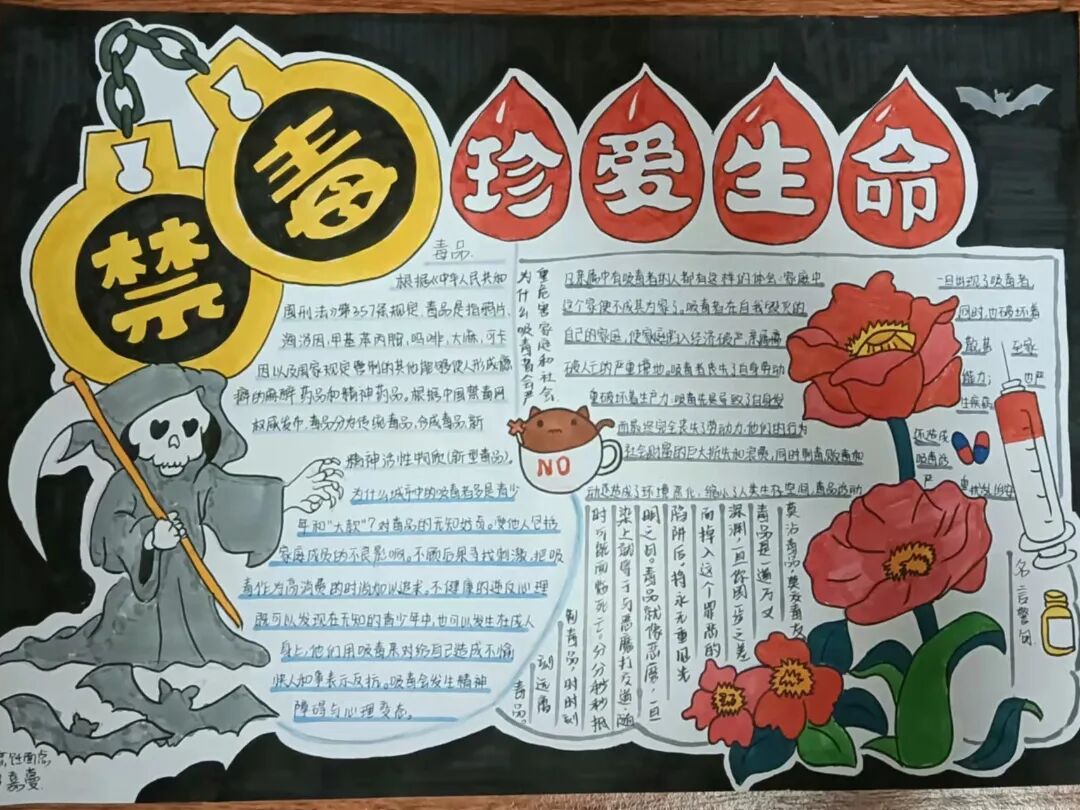 禁
毒
珍爱生命
毒品.
根据《中华人民共和
国刑法》第357条规定,毒品是指鸦片,
海洛因,甲基苯丙胺,吗啡,大麻,可卡
因以及国家规定管制的其他能够使人形成瘾
癖的麻醉药品和精神药品。根据中国禁毒网
权威发布,毒品分为传统毒品,合成毒品,新
精神活性物质(新型毒品)。
为什么城市中的吸毒者多是青少
年和“大款”?对毒品的无知
家庭成员的不良影响。不顾后果寻找刺激,把吸
毒作为高消费的时尚加以追求。不健康的逆反心理
既可以发现在无知的青少年中,也可以发生在成人
身上,他们用吸毒来对给自己造成不愉
快人和事表示反抗。吸毒会发生精神
障碍与心理变态。
为什么吸毒者会严
重危害家庭和社会
家属中有吸毒者的人都有这样的体会:家庭中
一旦出现了吸毒者,
这个家便不成其为家了。吸毒者在自我毁灭的
同时,也破坏着
自己的家庭,使家庭陷入经济破产,亲属离
吸毒者丧失了自身劳动
而最终完全丧失了劳动力,他们的行为
还造成
社会财富的巨大损失和浪费,同时制毒贩毒
动还造成了环境恶化,缩小了人类生存空间,毒品活动
NO
名言警句
莫沾毒品,莫交毒友
毒品是一道万丈
深渊,一旦你因一步之差
而掉入这个罪恶的
陷阱后,将永无重见光
明之日。毒品就像恶魔,一旦
染上就等于与恶魔打交道,随
时可能面临死亡,分分秒秒抵
制毒品,时时刻
刻远离
毒品。